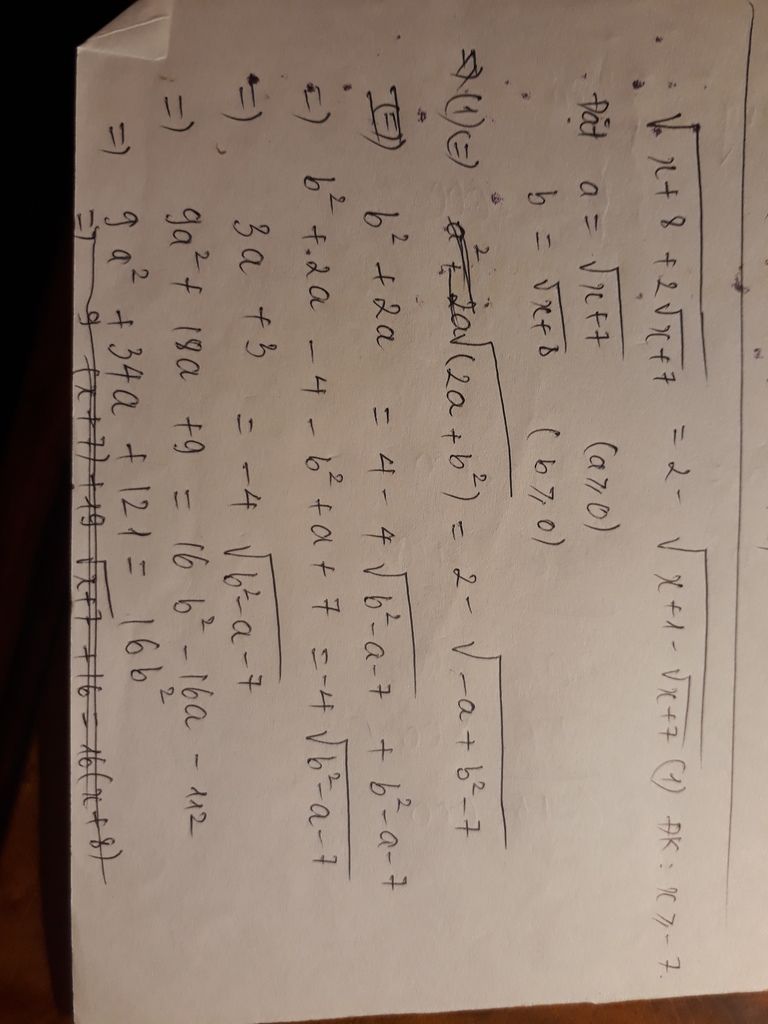 √(x + 8 + 2√(x+7)) = 2 - √(x+1 - √(x+7)) (1) ĐK: x ≥ -7.
Đặt a = √(x+7) (a ≥ 0)
b = √(x+8) (b ≥ 0)
(1) (=) √(2a + b²) = 2 - √(-a + b² - 7)
(=) b² + 2a = 4 - 4√(b² - a - 7) + b² - a - 7
(=) b² + 2a - 4 - b² + a + 7 = -4√(b² - a - 7)
=) 3a + 3 = -4√(b² - a - 7)
=) 9a² + 18a + 9 = 16b² - 16a - 112
=) 9a² + 34a + 121 = 16b²
=) 9(x+7) + 19√(x+7) + 16 = 16(x+8)